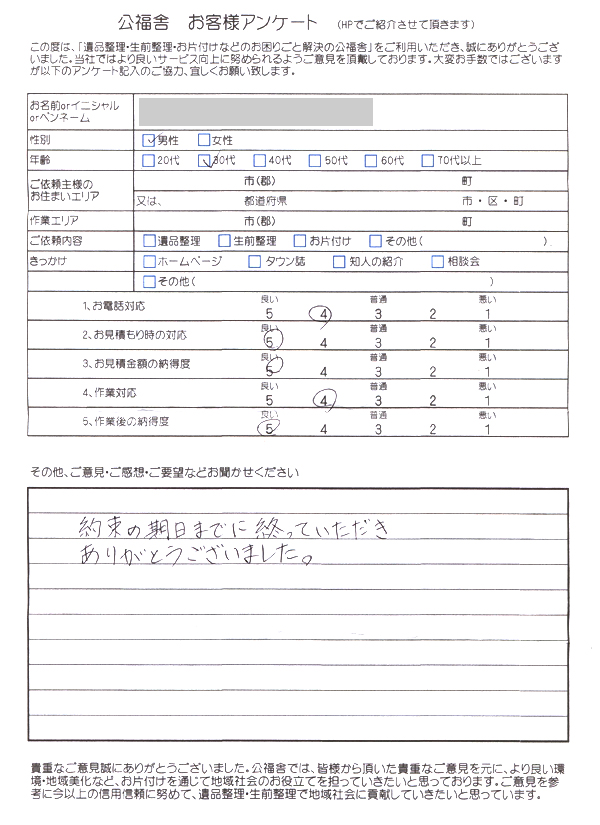 公福舎　お客様アンケート　（HPでご紹介させて頂きます）
この度は、「遺品整理・生前整理・お片付けなどのお困りごと解決の公福舎」をご利用いただき、誠にありがとうござ
いました。当社ではより良いサービス向上に努められるようご意見を頂戴しております。大変お手数ではございます
が以下のアンケート記入のご協力、宜しくお願い致します。
お名前orイニシャル
orペンネーム
性別　男性　女性
年齢　20代　30代　40代　50代　60代　70代以上
ご依頼主様の
お住まいエリア
市（郡）　町
又は、　都道府県　市・区・町
作業エリア　市（郡）　町
ご依頼内容　遺品整理　生前整理　お片付け　その他（　）．
きっかけ　ホームページ　タウン誌　知人の紹介　相談会
その他（　）
良い　普通　悪い
1、お電話対応　5　4　3　2　1
良い　普通　悪い
2、お見積もり時の対応　5　4　3　2　1
良い　普通　悪い
3、お見積金額の納得度　5　4　3　2　1
良い　普通　悪い
4、作業対応　5　4　3　2　1
良い　普通　悪い
5、作業後の納得度　5　4　3　2　1
その他、ご意見・ご感想・ご要望などお聞かせください
約束の期日までに終っていただき
ありがとうございました。
貴重なご意見誠にありがとうございました。公福舎では、皆様から頂いた貴重なご意見を元に、より良い環
境・地域美化など、お片付けを通じて地域社会のお役立てを担っていきたいと思っております。ご意見を参
考に今以上の信用信頼に努めて、遺品整理・生前整理で地域社会に貢献していきたいと思っています。